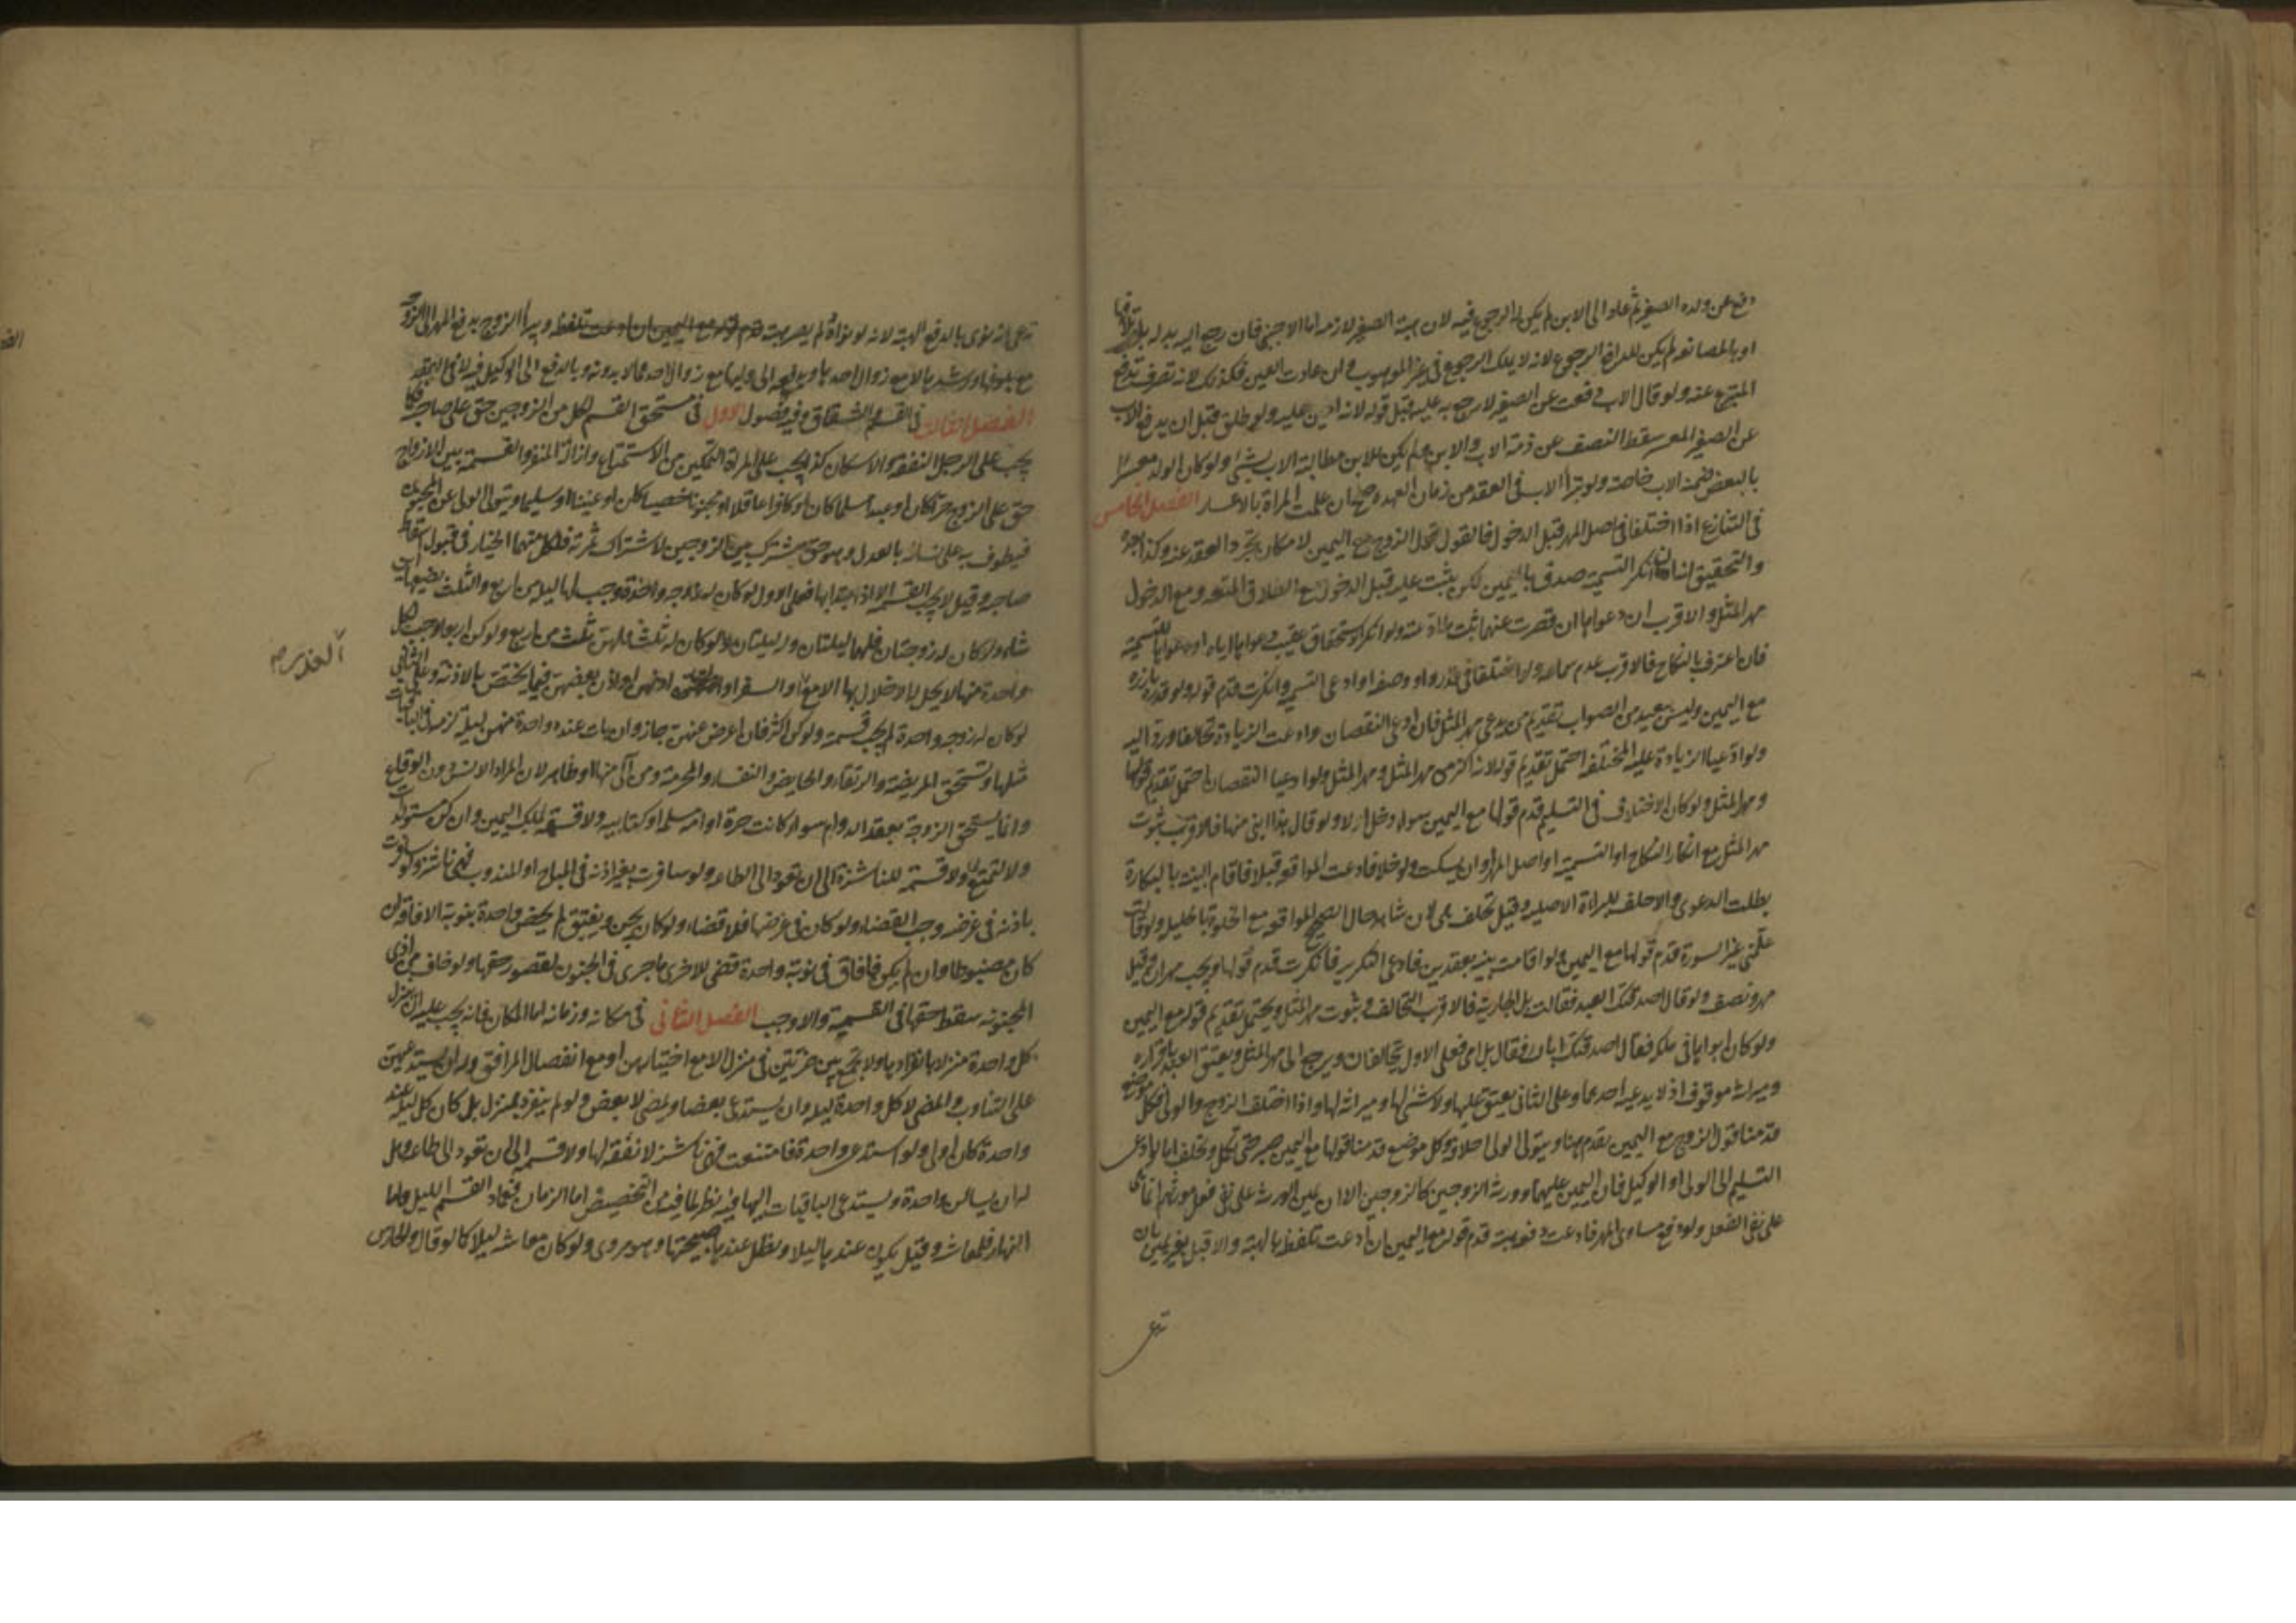 دفع عن ولده الصغير ثم عاد الى الابن لم يكن له الرجوع فيه لان هبة الصغير لازمة اما الاجنبي فان رجع اليه ببدله بطلاقها
او بالمصانعة لم يكن للمراة الرجوع لانه لا يملك الرجوع في غير الموهوب وان عادت العين فكذلك لانه تصرف
المتبرع عنه ولو قال الاب دفعت عن الصغير لارجع به عليه قبل قوله لانه امين عليه ولو طلق قبل ان يدفع الاب
عن الصغير المعسر سقط النصف عن ذمة الاب والابن ولم يكن للابن مطالبة الاب بشيء ولو كان الولد معسرا
بالبعض ضمنه الاب خاصة ولو تبرأ الاب في العقد من زمان العهدة صح ان علمت المراة بالاعسار الفصل الخامس
في التنازع اذا اختلفا في اصل المهر قبل الدخول فالقول قول الزوج مع اليمين لامكان تجرد العقد عنه وكذا بعده
والتحقيق انه ان انكر التسمية صدق باليمين لكن يثبت عليه قبل الدخول مع الطلاق المتعة ومع الدخول
مهر المثل والاقرب ان دعواها ان قصرت عنهما ثبت ما ادعته ولو انكر الاستحقاق عقيب دعواها اياه او دعواها للتسمية
فان اعترف بالنكاح فالاقرب عدم سماعه ولو اختلفا في قدره او وصفه او ادعى التسمية وانكرت قدم قوله ولو قدره بارزة
مع اليمين وليس ببعيد من الصواب تقديم من يدعي مهر المثل فان ادعى النقصان وادعت الزيادة تحالفا ورد اليه
ولو ادعيا الزيادة عليه المختلفة احتمل تقديم قوله لانه اكثر من مهر المثل ومهر المثل ولو ادعيا النقصان احتمل تقديم قولها
ومهر المثل ولو كان الاختلاف في التسليم قدم قولها مع اليمين سواء دخل او لا ولو قال هذا ابني منها فالاقرب ثبوت
مهر المثل مع انكار النكاح او التسمية او اصل المهر او ان يسكت ولو خلا فادعت المواقعة قبلا فاقام البينة بالبكارة
بطلت الدعوى والا حلف للبراءة الاصلية وقيل تحلف هي لان شاهد حال الصحيح المواقعة مع الخلوة بالحليلة ولو قالت
علمني غير السورة قدم قولها مع اليمين ولو اقامت بينة بعقدين فادعى التكرير فانكرت قدم قولها ويجب مهران وقيل
مهر ونصف ولو قال اصدقتك العبد فقالت بل الجارية فالاقرب التحالف وثبوت مهر المثل ويحتمل تقديم قوله مع اليمين
ولو كان ابواها في ملكه فقال اصدقتك اباك فقالت بل امي فعلى الاول يتحالفان ويرجع الى مهر المثل ويعتق العبد باقراره
وميراثه موقوف اذ لا يدعيه احدهما وعلى الثاني يعتق عليها ولا شيء لها وميراثه لها واذا اختلف الزوج والولي فكل موضع
قدمنا قول الزوج مع اليمين يقدم هنا ويتولى الولي احلافه وكل موضع قدمنا قولها مع اليمين صبر حتى تكمل وتحلف اما لو ادعى
التسليم الى الولي او الوكيل فان اليمين عليهما وورثة الزوجين كالزوجين الا ان يمين الورثة على نفي فعل مورثهم انما هي
على نفي الفعل ولو دفع مساوي المهر فادعت دفعه هبة قدم قوله مع اليمين ان ادعت تلفظه بالهبة والا قبل بغير يمين بان
تدعى
تدعى انه نوى بالدفع الهبة لانه لو نواه لم يصر هبة ويبرأ الزوج بدفع المهر الى الزوجة
مع بلوغها ورشدها لا مع زوال احدهما وبدفعه الى وليها مع زوال احدهما لا بدونه وبالدفع الى الوكيل فيه لا في العقد
الفصل الثالث في القسم والشقاق وفيه فصول الاول في مستحق القسم لكل من الزوجين حق على صاحبه فكما
يجب على الرجل النفقة والاسكان كذا يجب على المراة التمكين من الاستمتاع وازالة المنفر والقسمة بين الازواج
حق على الزوج حرا كان او عبدا مسلما كان او كافرا عاقلا او مجنونا خصيا كان او عنينا او سليما ويتولى الولي عن المجنون
فيطوف به على نسائه بالعدل وهو حق مشترك بين الزوجين لاشتراك ثمرته فلكل منهما الخيار في قبول اسقاط
صاحبه وقيل لا يجب القسم الا اذا ابتدأ بها فعلى الاول لو كان له زوجة واحدة وجب لها ليلة من اربع والثلث يضيعها اين
شاء ولو كان له زوجتان فلهما ليلتان وله ليلتان ولو كان له ثلث فلهن ثلث من اربع ولو كن اربعا وجب لكل
واحدة منها لا يحل له الاخلال بها الا مع او السفر او اذنهن او اذن بعضهن فيما يختص بالاذنة وعلى الثاني
لو كان له زوجة واحدة لم يجب قسمة ولو كن اكثر فان اعرض عنهن جاز وان بات عند واحدة منهن ليلة لزمه في الباقيات
مثلها وتستحق المريضة والرتقاء والحايض والنفساء والمحرمة ومن آلى منها او ظاهر لان المراد الانس دون الوقاع
وانما يستحق الزوجة بعقد الدوام سواء كانت حرة او امة مسلمة او كتابية ولا قسمة لملك اليمين وان كن مستولدات
ولا لمتمتع بها ولا قسمة للناشزة الى ان تعود الى الطاعة ولو سافرت بغير اذنه في المباح او المندوب فهي ناشز ولو سافرت
باذنه في غرضه وجب القضاء ولو كان في غرضها فلا قضاء ولو كان يجن ويفيق لم يخص واحدة بنوبة الافاقة ان
كان مضبوطا وان لم يكن فافاق في نوبة واحدة قضى للاخرى ما جرى في الجنون لقصور حقها ولو خاف من اذى
المجنونة سقط حقها في القسمة والا وجب الفصل الثاني في مكانه وزمانه اما المكان فانه يجب عليه ان ينزل
كل واحدة منزلا بانفرادها ولا يجمع بين ضرتين في منزل الا مع اختيارهن او مع انفصال المرافق وله ان يستدعيهن
على التناوب والمضي لا كل واحدة ليلة وان يستدعي بعضا ويمضي لا بعض ولو لم ينفرد بمنزل بل كان كل ليلة عند
واحدة كان اولى ولو استدعى واحدة فامتنعت فهي ناشز لا نفقة لها ولا قسمة الى ان تعود الى طاعته وهل
له ان يساكن واحدة ويستدعي الباقيات اليها فيه نظر لما فيه من التخصيص اما الزمان فعماد القسم الليل واما
النهار فلمعاشه وقيل يكون عندها ليلا ويظل عندها صبيحتها وهو مروي ولو كان معاشه ليلا كالوقاد والحارس